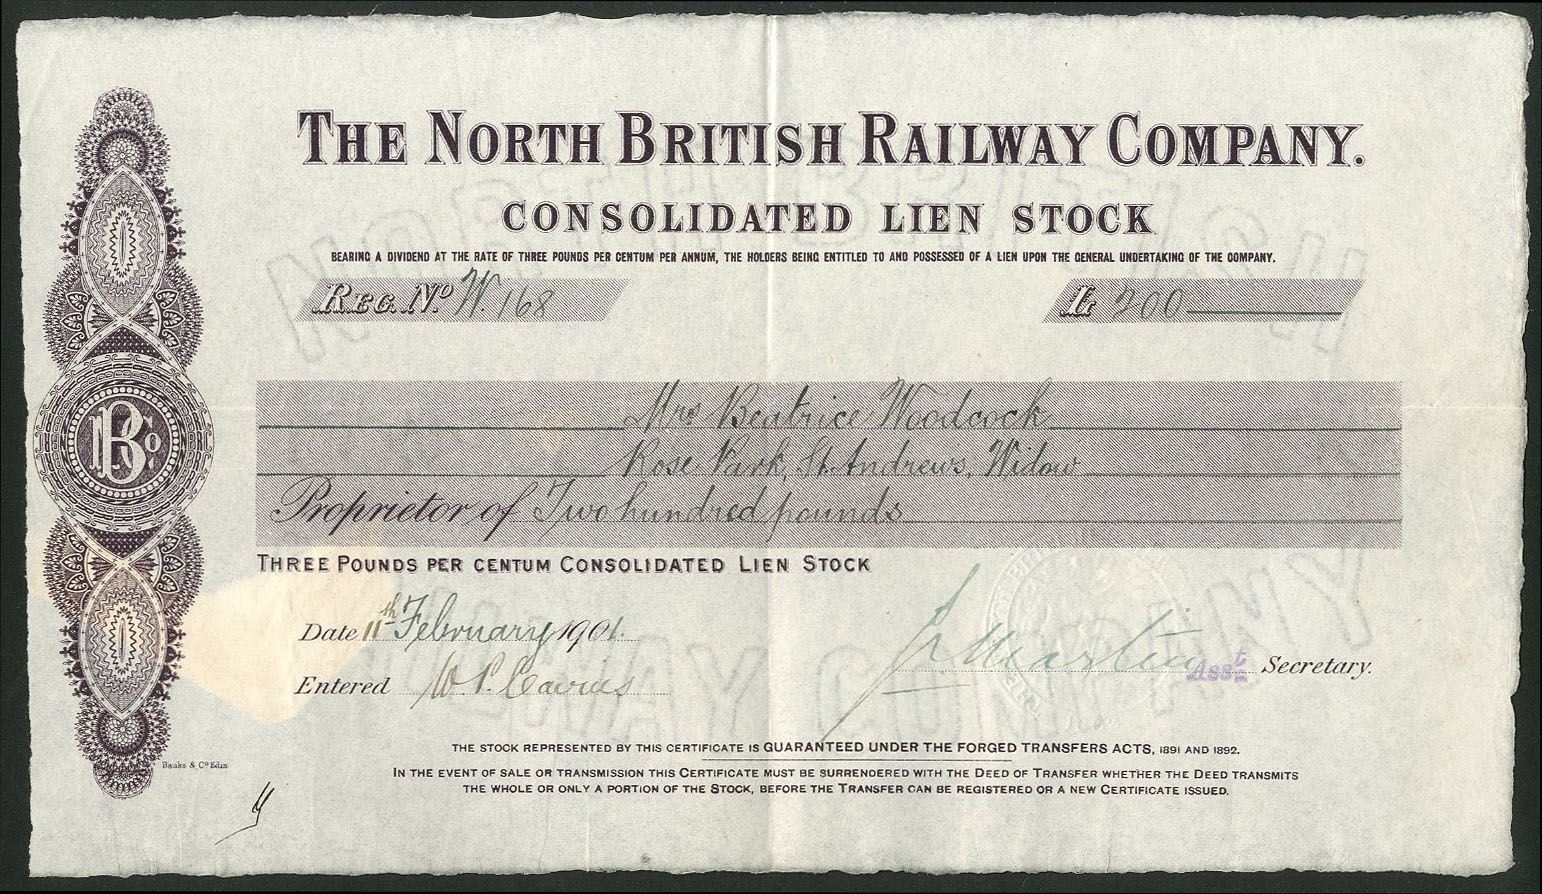 THE NORTH BRITISH RAILWAY COMPANY.
CONSOLIDATED LIEN STOCK
BEARING A DIVIDEND AT THE RATE OF THREE POUNDS PER CENTUM PER ANNUM, THE HOLDERS BEING ENTITLED TO AND POSSESSED OF A LIEN UPON THE GENERAL UNDERTAKING OF THE COMPANY.
REG. No. W. 168 £ 200
Mrs Beatrice Woodcock
Rose Park, St. Andrews, Widow
Proprietor of Two hundred pounds
THREE POUNDS PER CENTUM CONSOLIDATED LIEN STOCK
Date 11th February 1901.
Asst Secretary.
Entered
THE STOCK REPRESENTED BY THIS CERTIFICATE IS GUARANTEED UNDER THE FORGED TRANSFERS ACTS, 1891 AND 1892.
Banks & Co Edin
IN THE EVENT OF SALE OR TRANSMISSION THIS CERTIFICATE MUST BE SURRENDERED WITH THE DEED OF TRANSFER WHETHER THE DEED TRANSMITS
THE WHOLE OR ONLY A PORTION OF THE STOCK, BEFORE THE TRANSFER CAN BE REGISTERED OR A NEW CERTIFICATE ISSUED.